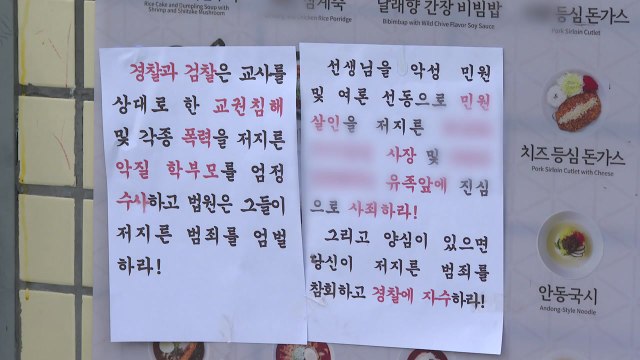 Rice Cake and Dumpling Soup with
Shrimp and Shiitake Mushroom
Rice Porridge
달래향 간장 비빔밥
Bibimbap with Wild Chive Flavor Soy Sauce
등심 돈가스
Pork Sirloin Cutlet
경찰과 검찰은 교사를
상대로 한 교권침해
및 각종 폭력을 저지른
악질 학부모를 엄정
수사하고 법원은 그들이
저지른 범죄를 엄벌
하라!
선생님을 악성 민원
및 여론 선동으로 민원
살인을 저지른
사장 및
유족앞에 진심
으로 사죄하라!
그리고 양심이 있으면
당신이 저지른 범죄를
참회하고 경찰에 자수하라!
치즈 등심 돈가스
Pork Sirloin Cutlet with Cheese
안동국시
Andong-Style Noodle